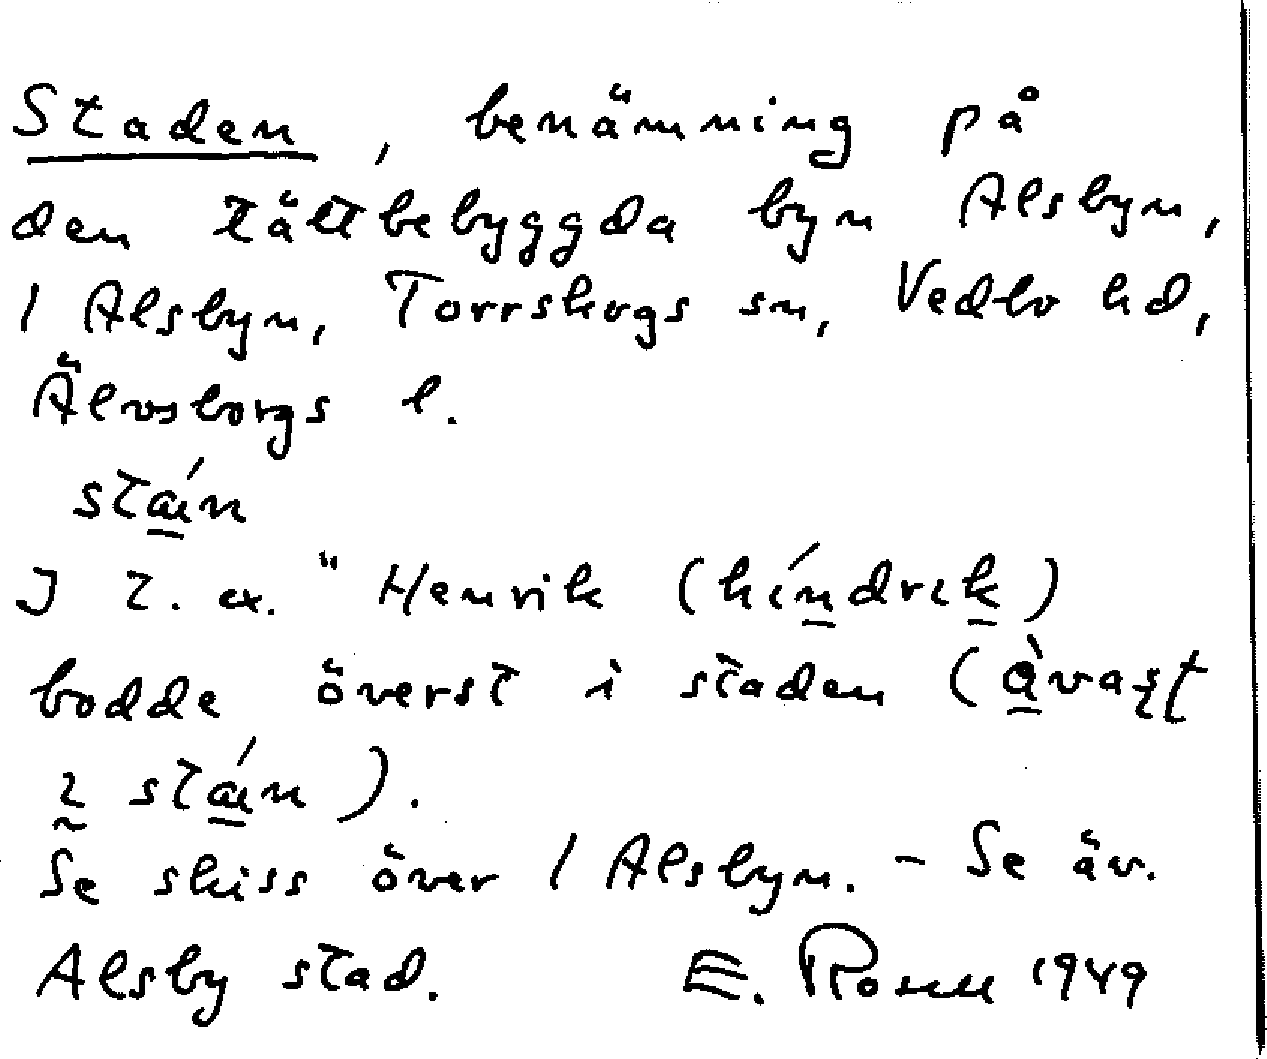 Staden, benämning på
den tättbebyggda byn Alsbyn,
1 Alsbyn, Torrskogs sn, Vedbo hd,
Älvsborgs l.
I t. ex. "Henrik (híndrɩk)
bodde överst i staden
Se skiss över 1 Alsbyn. – Se äv.
Alsby stad. E. Rosell 1949